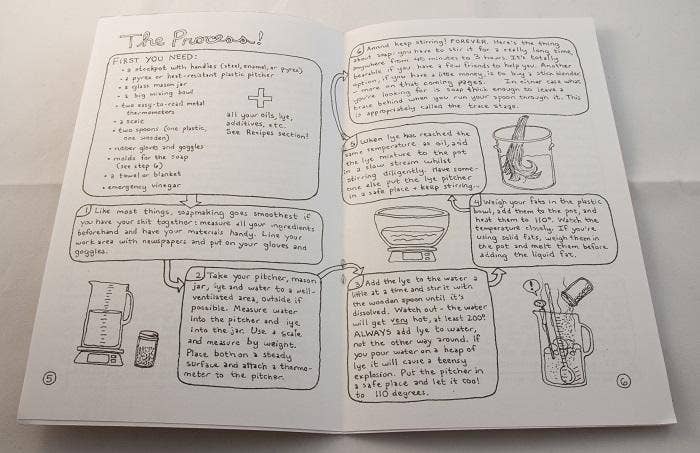 The Process!
FIRST YOU NEED:
• a stockpot with handles (steel, enamel, or pyrex)
• a pyrex or heat-resistant plastic pitcher
• a glass mason jar
• a big mixing bowl
• two easy-to-read metal
thermometers
• a scale
• two spoons (one plastic,
one wooden)
• rubber gloves and goggles
• molds for the soap
(see step 6)
• a towel or blanket
• emergency vinegar
+
all your oils, lye,
additives, etc.
See Recipes section!
1 Like most things, soapmaking goes smoothest if
you have your shit together: measure all your ingredients
beforehand and have your materials handy. Line your
work area with newspapers and put on your gloves and
goggles.
2 Take your pitcher, mason
jar, lye and water to a well-
ventilated area, outside if
possible. Measure water
into the pitcher and lye
into the jar. Use a scale
and measure by weight.
Place both on a steady
surface and attach a thermo-
meter to the pitcher.
5
3 Add the lye to the water a
little at a time and stir it with
the wooden spoon until it's
dissolved. Watch out - the water
will get very hot, at least 200°
ALWAYS add lye to water,
not the other way around. If
you pour water on a heap of
lye it will cause a teensy
explosion. Put the pitcher in
a safe place and let it cool
to 110 degrees.
!
4 Weigh your fats in the plastic
bowl, add them to the pot, and
heat them to 110°. Watch the
temperature closely. If you're
using solid fats, weigh them in
the pot and melt them before
adding the liquid fat.
5 When lye has reached the
same temperature as oil, add
the lye mixture to the pot
in a slow stream whilst
stirring diligently. Have some-
one else put the lye pitcher
in a safe place + keep stirring...
6 Aaand keep stirring! FOREVER. Here's the thing
about soap: you have to stir it for a really long time,
anywhere from 40 minutes to 3 hours. It's totally
bearable if you have a few friends to help you. Another
option, if you have a little money, is to buy a stick blender
- more on that coming pages. In either case what
you're looking for is soap thick enough to leave a
trace behind when you run your spoon through it. This
is appropriately called the trace stage.
6